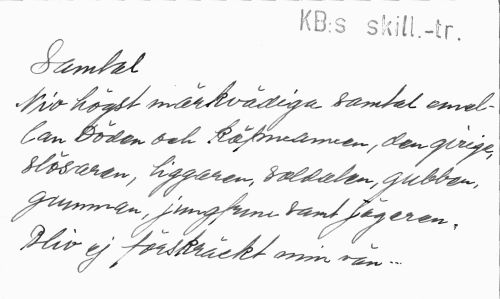 KB:s skill.-tr.
Samtal
Nio högst märkvädiga samtal emel-
lan Döden och köpmannen, den girige,
slösaren, tiggaren, soldaten, gubben,
gumman, jungfrun samt jägaren.
Bliv ej förskräckt min vän --